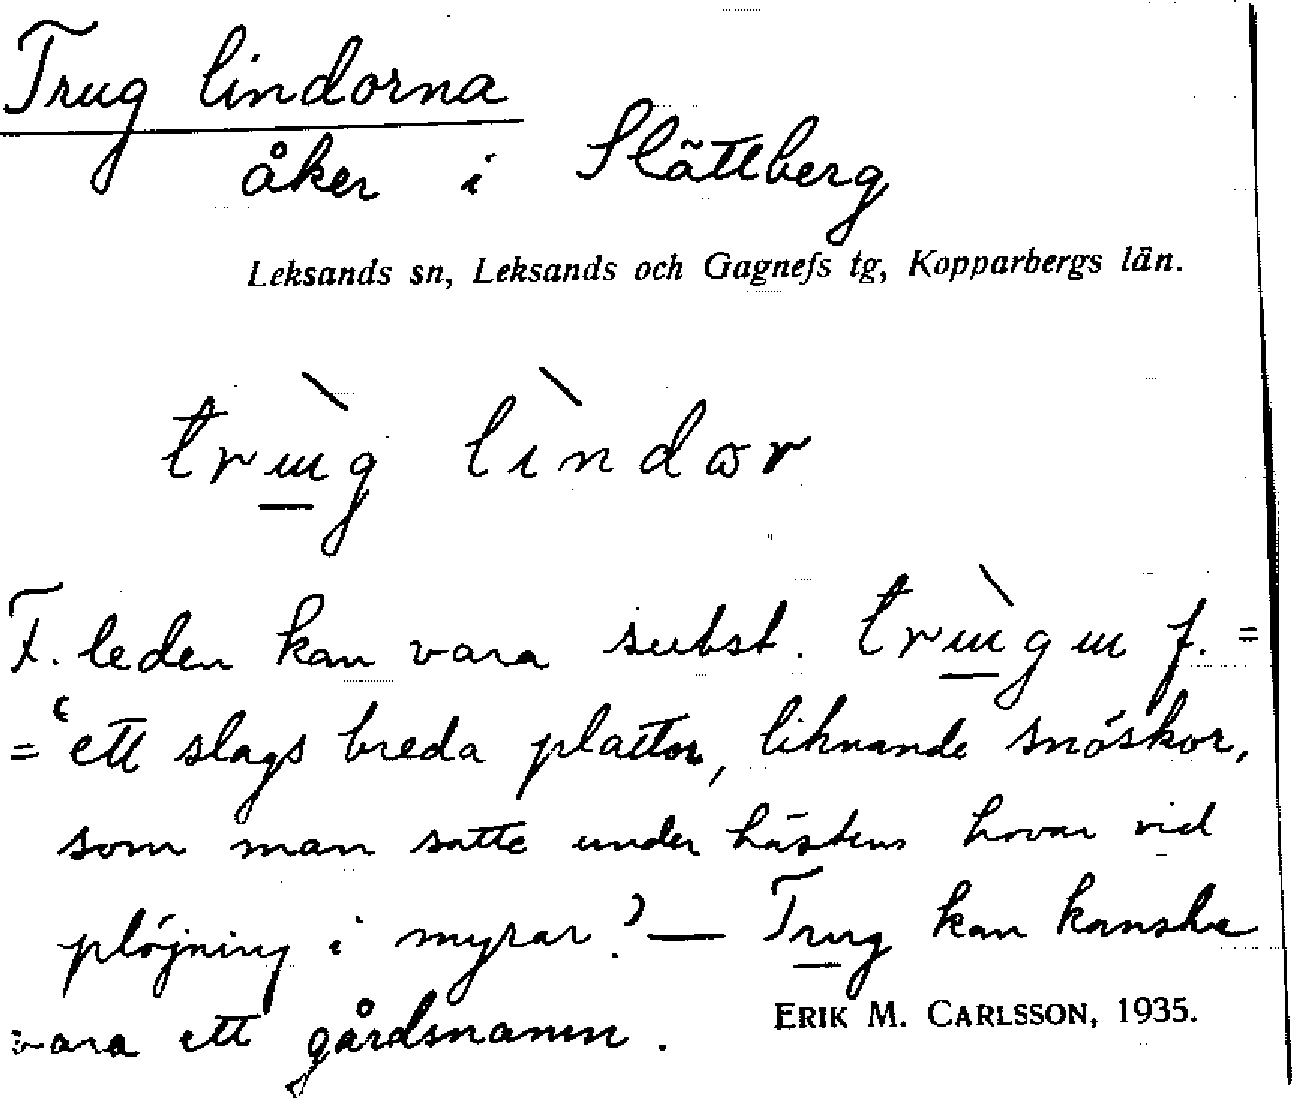 Trug lindorna
åker i Slättberg
Leksands sn, Leksands och Gagnefs tg, Kopparbergs län.
trɯ̲̀g lìndɷr
F. leden kan vara subst. trɯ̲̀gɯ f. =
= ‘ett slags breda plattor, liknande snöskor,
som man satte under hästens hovar vid
plöjning i myrar.’ — Trug kan kanske
vara ett gårdsnamn.
ERIK M. CARLSSON, 1935.